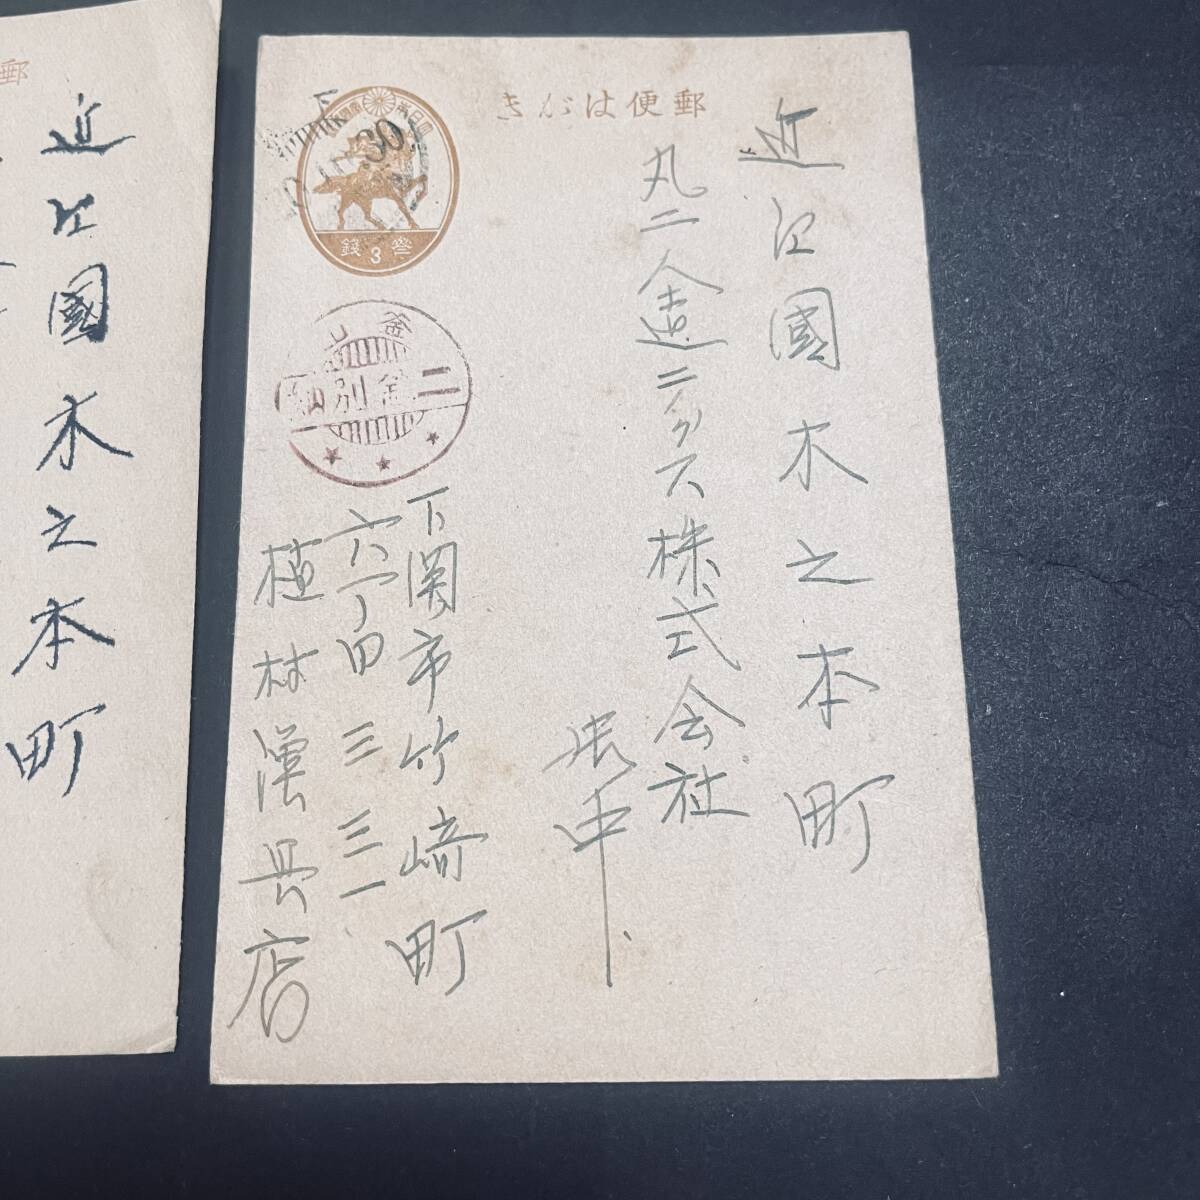 郵便はがき
近江國木之本町
丸二金造ニックス株式会社
御中
下関市竹崎町
六丁目三三一
植村漁具店
大日本帝國郵便
30
参3錢
釜山
二金別納
郵
近江國木之本町